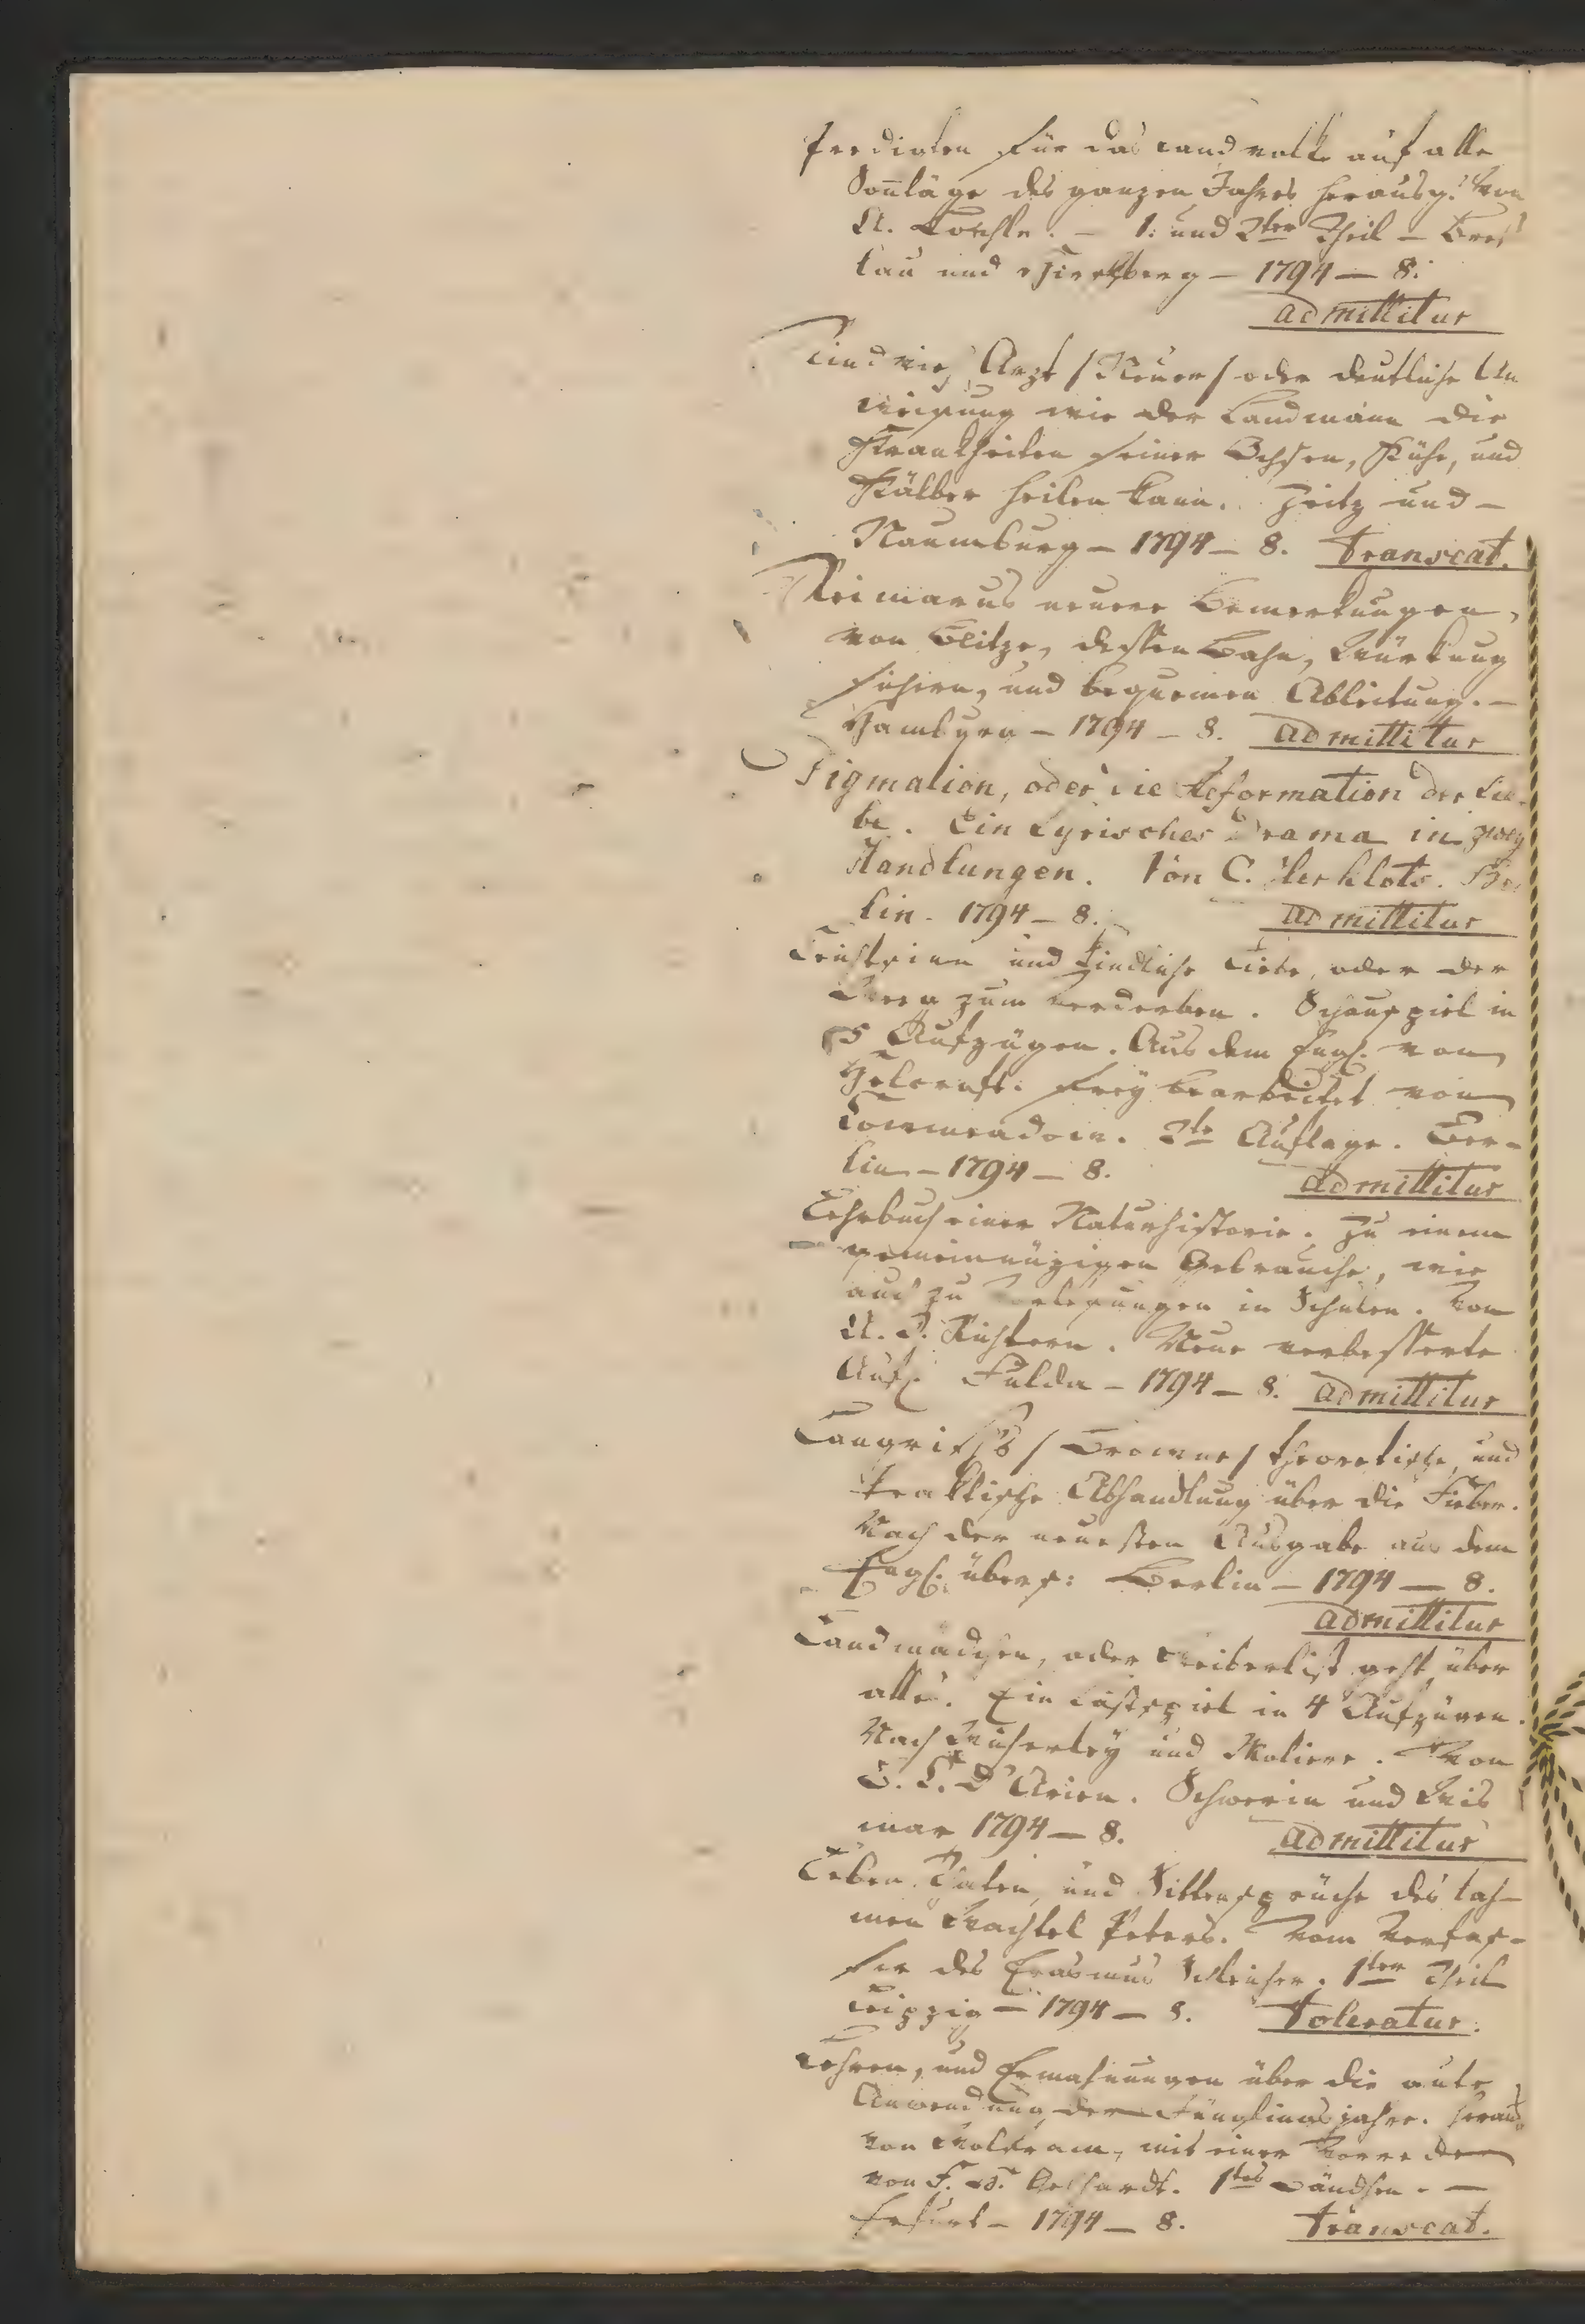 Predigten für das Landvolk auf alle
Sonntäge des ganzen Jahres herausg. von
A. – 1. und 2ter Theil – Bres
lau und Hirschberg – 1794 – 8.
admittitur
Rindvieh Arzt /Neuer/ oder deutliche An
weisung wie der Landmann die
Krankheiten seiner Ochsen, Kühe, und
Kälber heilen kann. Zeitz und –
Naumburg – 1794 – 8. transeat.
Reimarus neuere Bemerkungen,
von Blitze, dessen Bahn, Würkung
sichern, und bequemen Ableitung. –
Hamburg – 1794 – 8. admittitur
Pigmalion, oder die Reformation der Lie-
be. Ein Lyrisches Drama in zwey
Handlungen. Von C. Herklots. Ber
lin – 1794 – 8. admittitur
Leichtsinn und kindliche Liebe, oder der
Weeg zum verderben. Schauspiel in
5 Aufzügen. Aus dem Engl. von
Holcroft. frey bearbeitet von
2te Auflage. Ber-
lin – 1794 – 8. admittitur
Lehrbuch einer Naturhistorie. Zu einem
gemeinnüzigen Gebrauche, wie
auch zu Vorlesungen in Schulen. Von
A. Richtern. Neue verbesserte
Aufl. Fulda – 1794 – 8. admittitur
Langrish's /Browne/ theoretische, und
praktische Abhandlung über die Fieber.
Nach der neuesten Ausgabe aus dem
Engl. übers: Berlin – 1794 – 8.
admittitur
Landmädchen, oder Weiberlist geht über
alle. Ein Lustspiel in 4 Aufzügen.
Nach Wicherley und Moliere. Von
B. C. D'Arien. Schwerin und Wis
mar 1794 – 8. admittitur
Leben Thaten, und Sittensprüche des lah-
men Wachtel Peters. Vom Verfas-
ser des Erasmus Schleicher. 1ter Theil
Leipzig – 1794 – 8. toleratur.
Lehren, und Ermahnungen über die gute
Anwendung der Jünglingsjahre. herausg.
von Wolfram, mit einer Vorrede
von F. Gebhardt. 1tes Bändchen. –
Erfurt – 1794 – 8. transeat.